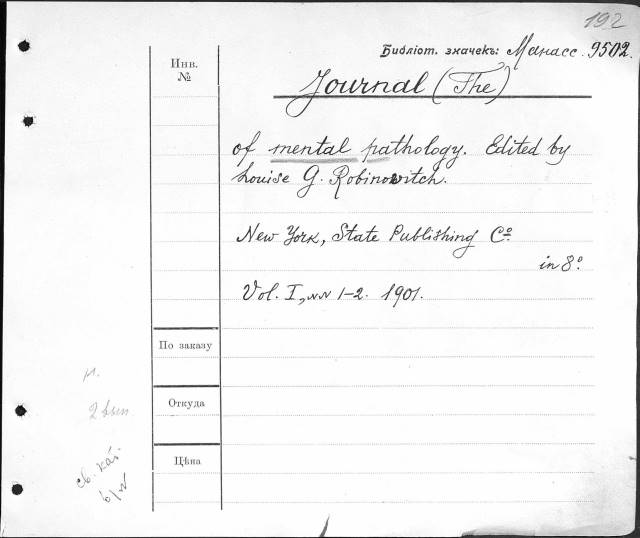 192
Библіот. значекъ: Манасс. 9502.
Инв.
№
Journal (The)
of mental pathology. Edited by
Louise G. Robinovitch.
New York, State Publishing Cº.
in 8º.
Vol. I, NN 1-2. 1901.
По заказу
Откуда
Цѣна
2 вып
св. кат.